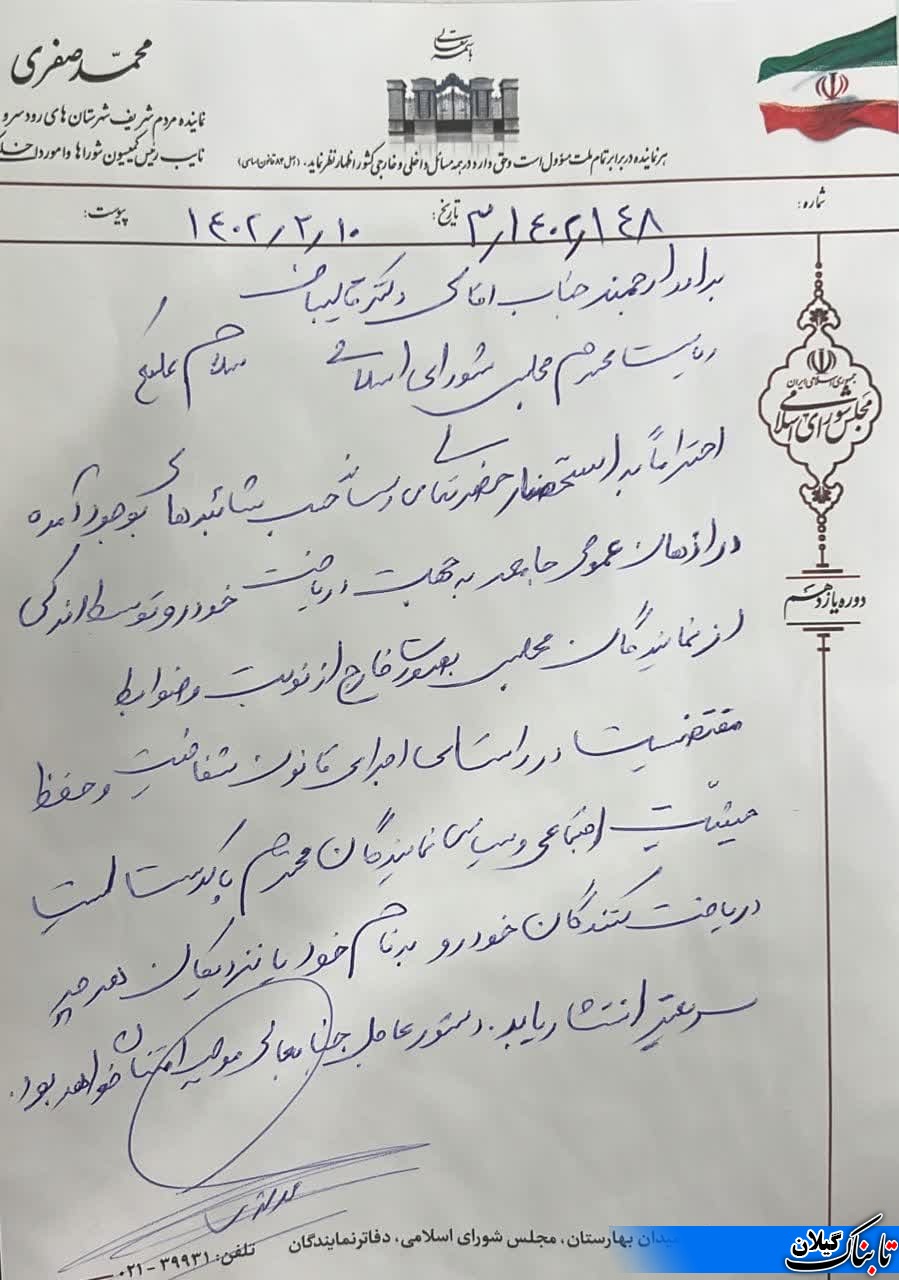 باسمه تعالی
محمد صفری
نماینده مردم شریف شهرستان های رودسر و
نایب رئیس کمیسیون شوراها و امور داخلی
هر نماینده در برابر تمام ملت مسؤول است و حق دارد در همه مسائل داخلی و خارجی کشور اظهار نظر نماید. (اصل ۸۴ قانون اساسی)
شماره: ۳/۱۴۰۲/۱۴۸ تاریخ: ۱۴۰۲/۲/۱۰ پیوست:
برادر ارجمند جناب آقای دکتر قالیباف
ریاست محترم مجلس شورای اسلامی سلام علیکم
احتراماً به استحضار حضرتعالی می رساند حسب شائبه های بوجود آمده
در اذهان عمومی جامعه به جهت دریافت خودرو توسط اندکی
از نمایندگان مجلس بصورت خارج از نوبت و ضوابط
مقتضیست در راستای اجرای قانون شفافیت و حفظ
حیثیت اجتماعی و سیاسی نمایندگان محترم پاکدست لیست
دریافت کنندگان خودرو به نام خود یا نزدیکان هر چه
سریعتر انتشار یابد. دستور عاجل جنابعالی موجب امتنان خواهد بود.
جمهوری اسلامی ایران
مجلس شورای اسلامی
دوره یازدهم
میدان بهارستان، مجلس شورای اسلامی، دفاتر نمایندگان
تلفن: ۳۹۹۳۱-۰۲۱
تابناک گیلان